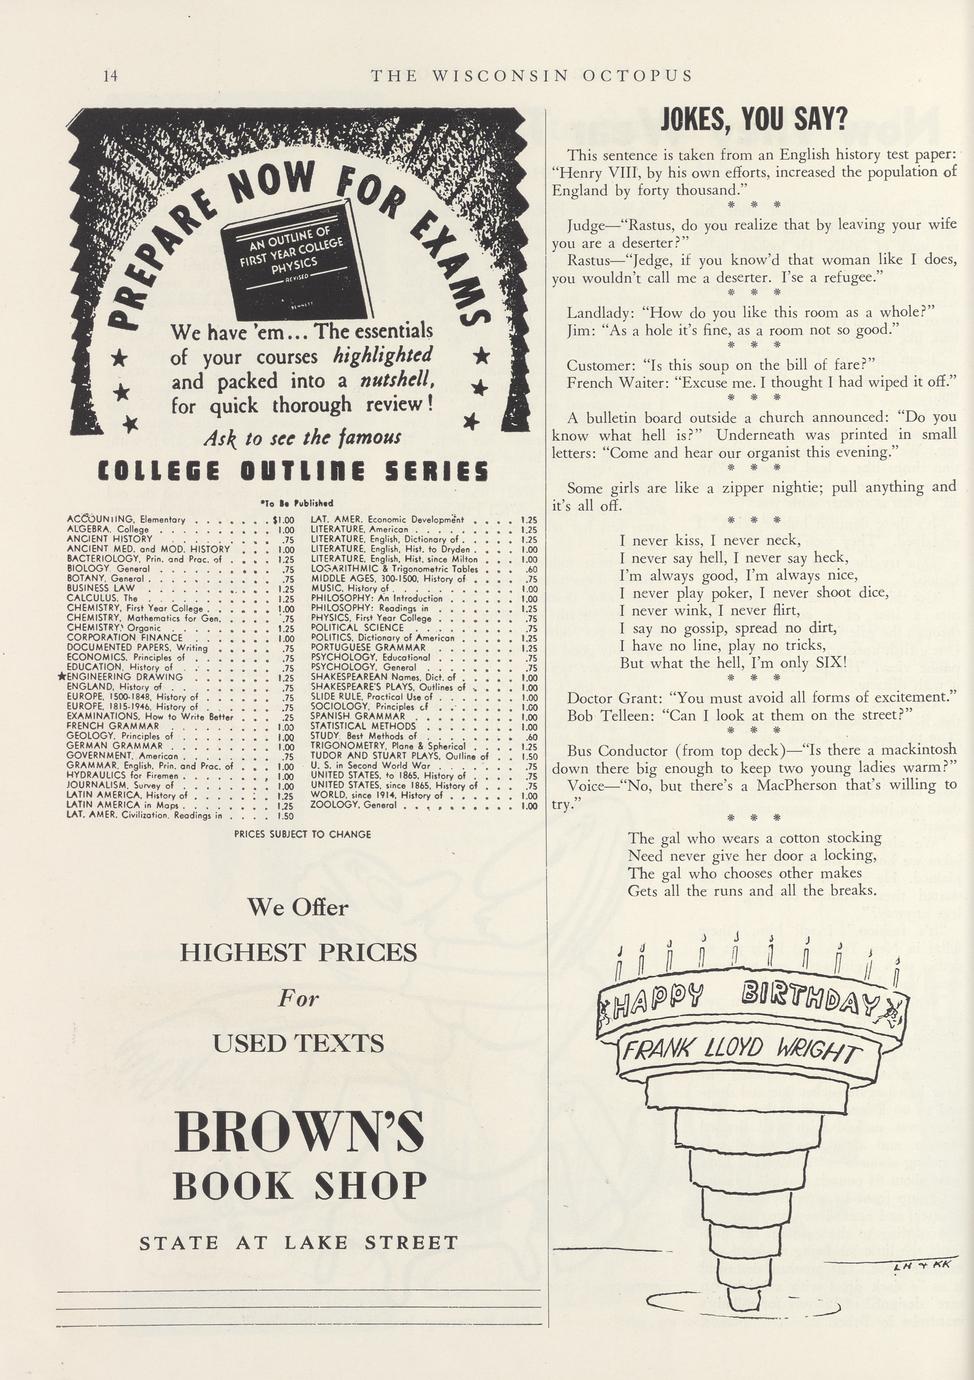 14
THE WISCONSIN OCTOPUS
PREPARE NOW FOR EXAMS
AN OUTLINE OF
FIRST YEAR COLLEGE
PHYSICS
REVISED
BENNETT
We have 'em... The essentials
of your courses highlighted
and packed into a nutshell,
for quick thorough review!
Ask to see the famous
COLLEGE OUTLINE SERIES
*To Be Published
ACCOUNTING, Elementary . . . . . . . $1.00
ALGEBRA, College . . . . . . . . . 1.00
ANCIENT HISTORY . . . . . . . . . .75
ANCIENT MED. and MOD. HISTORY . . . 1.00
BACTERIOLOGY, Prin. and Prac. of . . . . 1.25
BIOLOGY General . . . . . . . . . .75
BOTANY, General . . . . . . . . . .75
BUSINESS LAW . . . . . . . . . . 1.25
CALCULUS, The . . . . . . . . . . 1.25
CHEMISTRY, First Year College . . . . . 1.00
CHEMISTRY, Mathematics for Gen. . . . . .75
CHEMISTRY, Organic . . . . . . . . 1.25
CORPORATION FINANCE . . . . . . . 1.00
DOCUMENTED PAPERS, Writing . . . . . .75
ECONOMICS, Principles of . . . . . . .75
EDUCATION, History of . . . . . . . .75
★ENGINEERING DRAWING . . . . . . 1.25
ENGLAND, History of . . . . . . . . .75
EUROPE, 1500-1848, History of . . . . . .75
EUROPE, 1815-1946, History of . . . . . .75
EXAMINATIONS, How to Write Better . . . .25
FRENCH GRAMMAR . . . . . . . . 1.00
GEOLOGY, Principles of . . . . . . . 1.00
GERMAN GRAMMAR . . . . . . . . 1.00
GOVERNMENT, American . . . . . . . .75
GRAMMAR, English, Prin. and Prac. of . . . 1.00
HYDRAULICS for Firemen . . . . . . . 1.00
JOURNALISM, Survey of . . . . . . . 1.00
LATIN AMERICA, History of . . . . . . 1.25
LATIN AMERICA in Maps . . . . . . . 1.25
LAT. AMER. Civilization, Readings in . . . . 1.50
LAT. AMER. Economic Development . . . . 1.25
LITERATURE, American . . . . . . . . 1.25
LITERATURE, English, Dictionary of . . . . 1.25
LITERATURE, English, Hist. to Dryden . . . . 1.00
LITERATURE, English, Hist. since Milton . . . 1.00
LOGARITHMIC & Trigonometric Tables . . . .60
MIDDLE AGES, 300-1500, History of . . . . .75
MUSIC, History of . . . . . . . . . 1.00
PHILOSOPHY: An Introduction . . . . . . 1.00
PHILOSOPHY: Readings in . . . . . . . 1.25
PHYSICS, First Year College . . . . . . .75
POLITICAL SCIENCE . . . . . . . . .75
POLITICS, Dictionary of American . . . . . 1.25
PORTUGUESE GRAMMAR . . . . . . . 1.25
PSYCHOLOGY, Educational . . . . . . . .75
PSYCHOLOGY, General . . . . . . . . .75
SHAKESPEAREAN Names, Dict. of . . . . . 1.00
SHAKESPEARE'S PLAYS, Outlines of . . . . 1.00
SLIDE RULE, Practical Use of . . . . . . 1.00
SOCIOLOGY, Principles of . . . . . . . 1.00
SPANISH GRAMMAR . . . . . . . . 1.00
STATISTICAL METHODS . . . . . . . . 1.00
STUDY, Best Methods of . . . . . . . .60
TRIGONOMETRY, Plane & Spherical . . . . 1.25
TUDOR AND STUART PLAYS, Outline of . . . 1.50
U. S. in Second World War . . . . . . .75
UNITED STATES, to 1865, History of . . . . .75
UNITED STATES, since 1865, History of . . . .75
WORLD, since 1914, History of . . . . . 1.00
ZOOLOGY, General . . . . . . . . . 1.00
PRICES SUBJECT TO CHANGE
We Offer
HIGHEST PRICES
For
USED TEXTS
BROWN'S
BOOK SHOP
STATE AT LAKE STREET
JOKES, YOU SAY?
This sentence is taken from an English history test paper:
"Henry VIII, by his own efforts, increased the population of
England by forty thousand."
* * *
Judge—"Rastus, do you realize that by leaving your wife
you are a deserter?"
Rastus—"Jedge, if you know'd that woman like I does,
you wouldn't call me a deserter. I'se a refugee."
* * *
Landlady: "How do you like this room as a whole?"
Jim: "As a hole it's fine, as a room not so good."
* * *
Customer: "Is this soup on the bill of fare?"
French Waiter: "Excuse me. I thought I had wiped it off."
* * *
A bulletin board outside a church announced: "Do you
know what hell is?" Underneath was printed in small
letters: "Come and hear our organist this evening."
* * *
Some girls are like a zipper nightie; pull anything and
it's all off.
* * *
I never kiss, I never neck,
I never say hell, I never say heck,
I'm always good, I'm always nice,
I never play poker, I never shoot dice,
I never wink, I never flirt,
I say no gossip, spread no dirt,
I have no line, play no tricks,
But what the hell, I'm only SIX!
* * *
Doctor Grant: "You must avoid all forms of excitement."
Bob Telleen: "Can I look at them on the street?"
* * *
Bus Conductor (from top deck)—"Is there a mackintosh
down there big enough to keep two young ladies warm?"
Voice—"No, but there's a MacPherson that's willing to
try."
* * *
The gal who wears a cotton stocking
Need never give her door a locking,
The gal who chooses other makes
Gets all the runs and all the breaks.
HAPPY BIRTHDAY
FRANK LLOYD WRIGHT
LH + KK